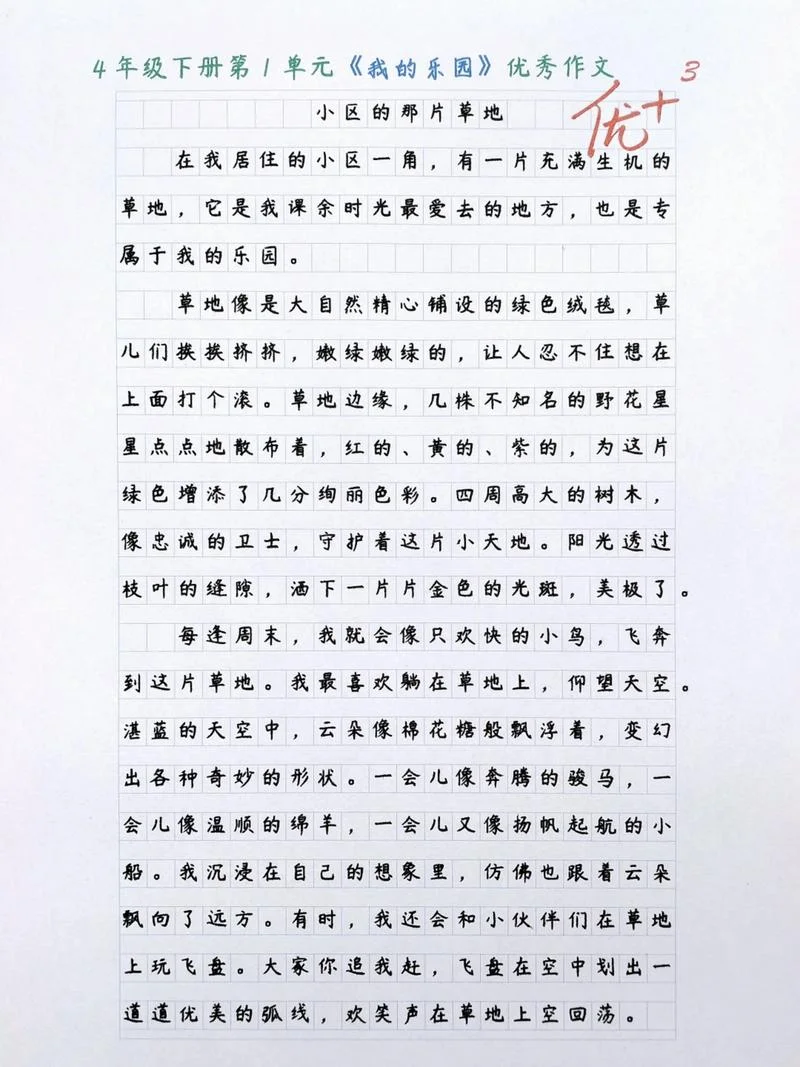 4年级下册第1单元《我的乐园》优秀作文 3
优+
小区的那片草地
在我居住的小区一角，有一片充满生机的
草地，它是我课余时光最爱去的地方，也是专
属于我的乐园。
草地像是大自然精心铺设的绿色绒毯，草
儿们挨挨挤挤，嫩绿嫩绿的，让人忍不住想在
上面打个滚。草地边缘，几株不知名的野花星
星点点地散布着，红的、黄的、紫的，为这片
绿色增添了几分绚丽色彩。四周高大的树木，
像忠诚的卫士，守护着这片小天地。阳光透过
枝叶的缝隙，洒下一片片金色的光斑，美极了。
每逢周末，我就会像只欢快的小鸟，飞奔
到这片草地。我最喜欢躺在草地上，仰望天空。
湛蓝的天空中，云朵像棉花糖般飘浮着，变幻
出各种奇妙的形状。一会儿像奔腾的骏马，一
会儿像温顺的绵羊，一会儿又像扬帆起航的小
船。我沉浸在自己的想象里，仿佛也跟着云朵
飘向了远方。有时，我还会和小伙伴们在草地
上玩飞盘。大家你追我赶，飞盘在空中划出一
道道优美的弧线，欢笑声在草地上空回荡。